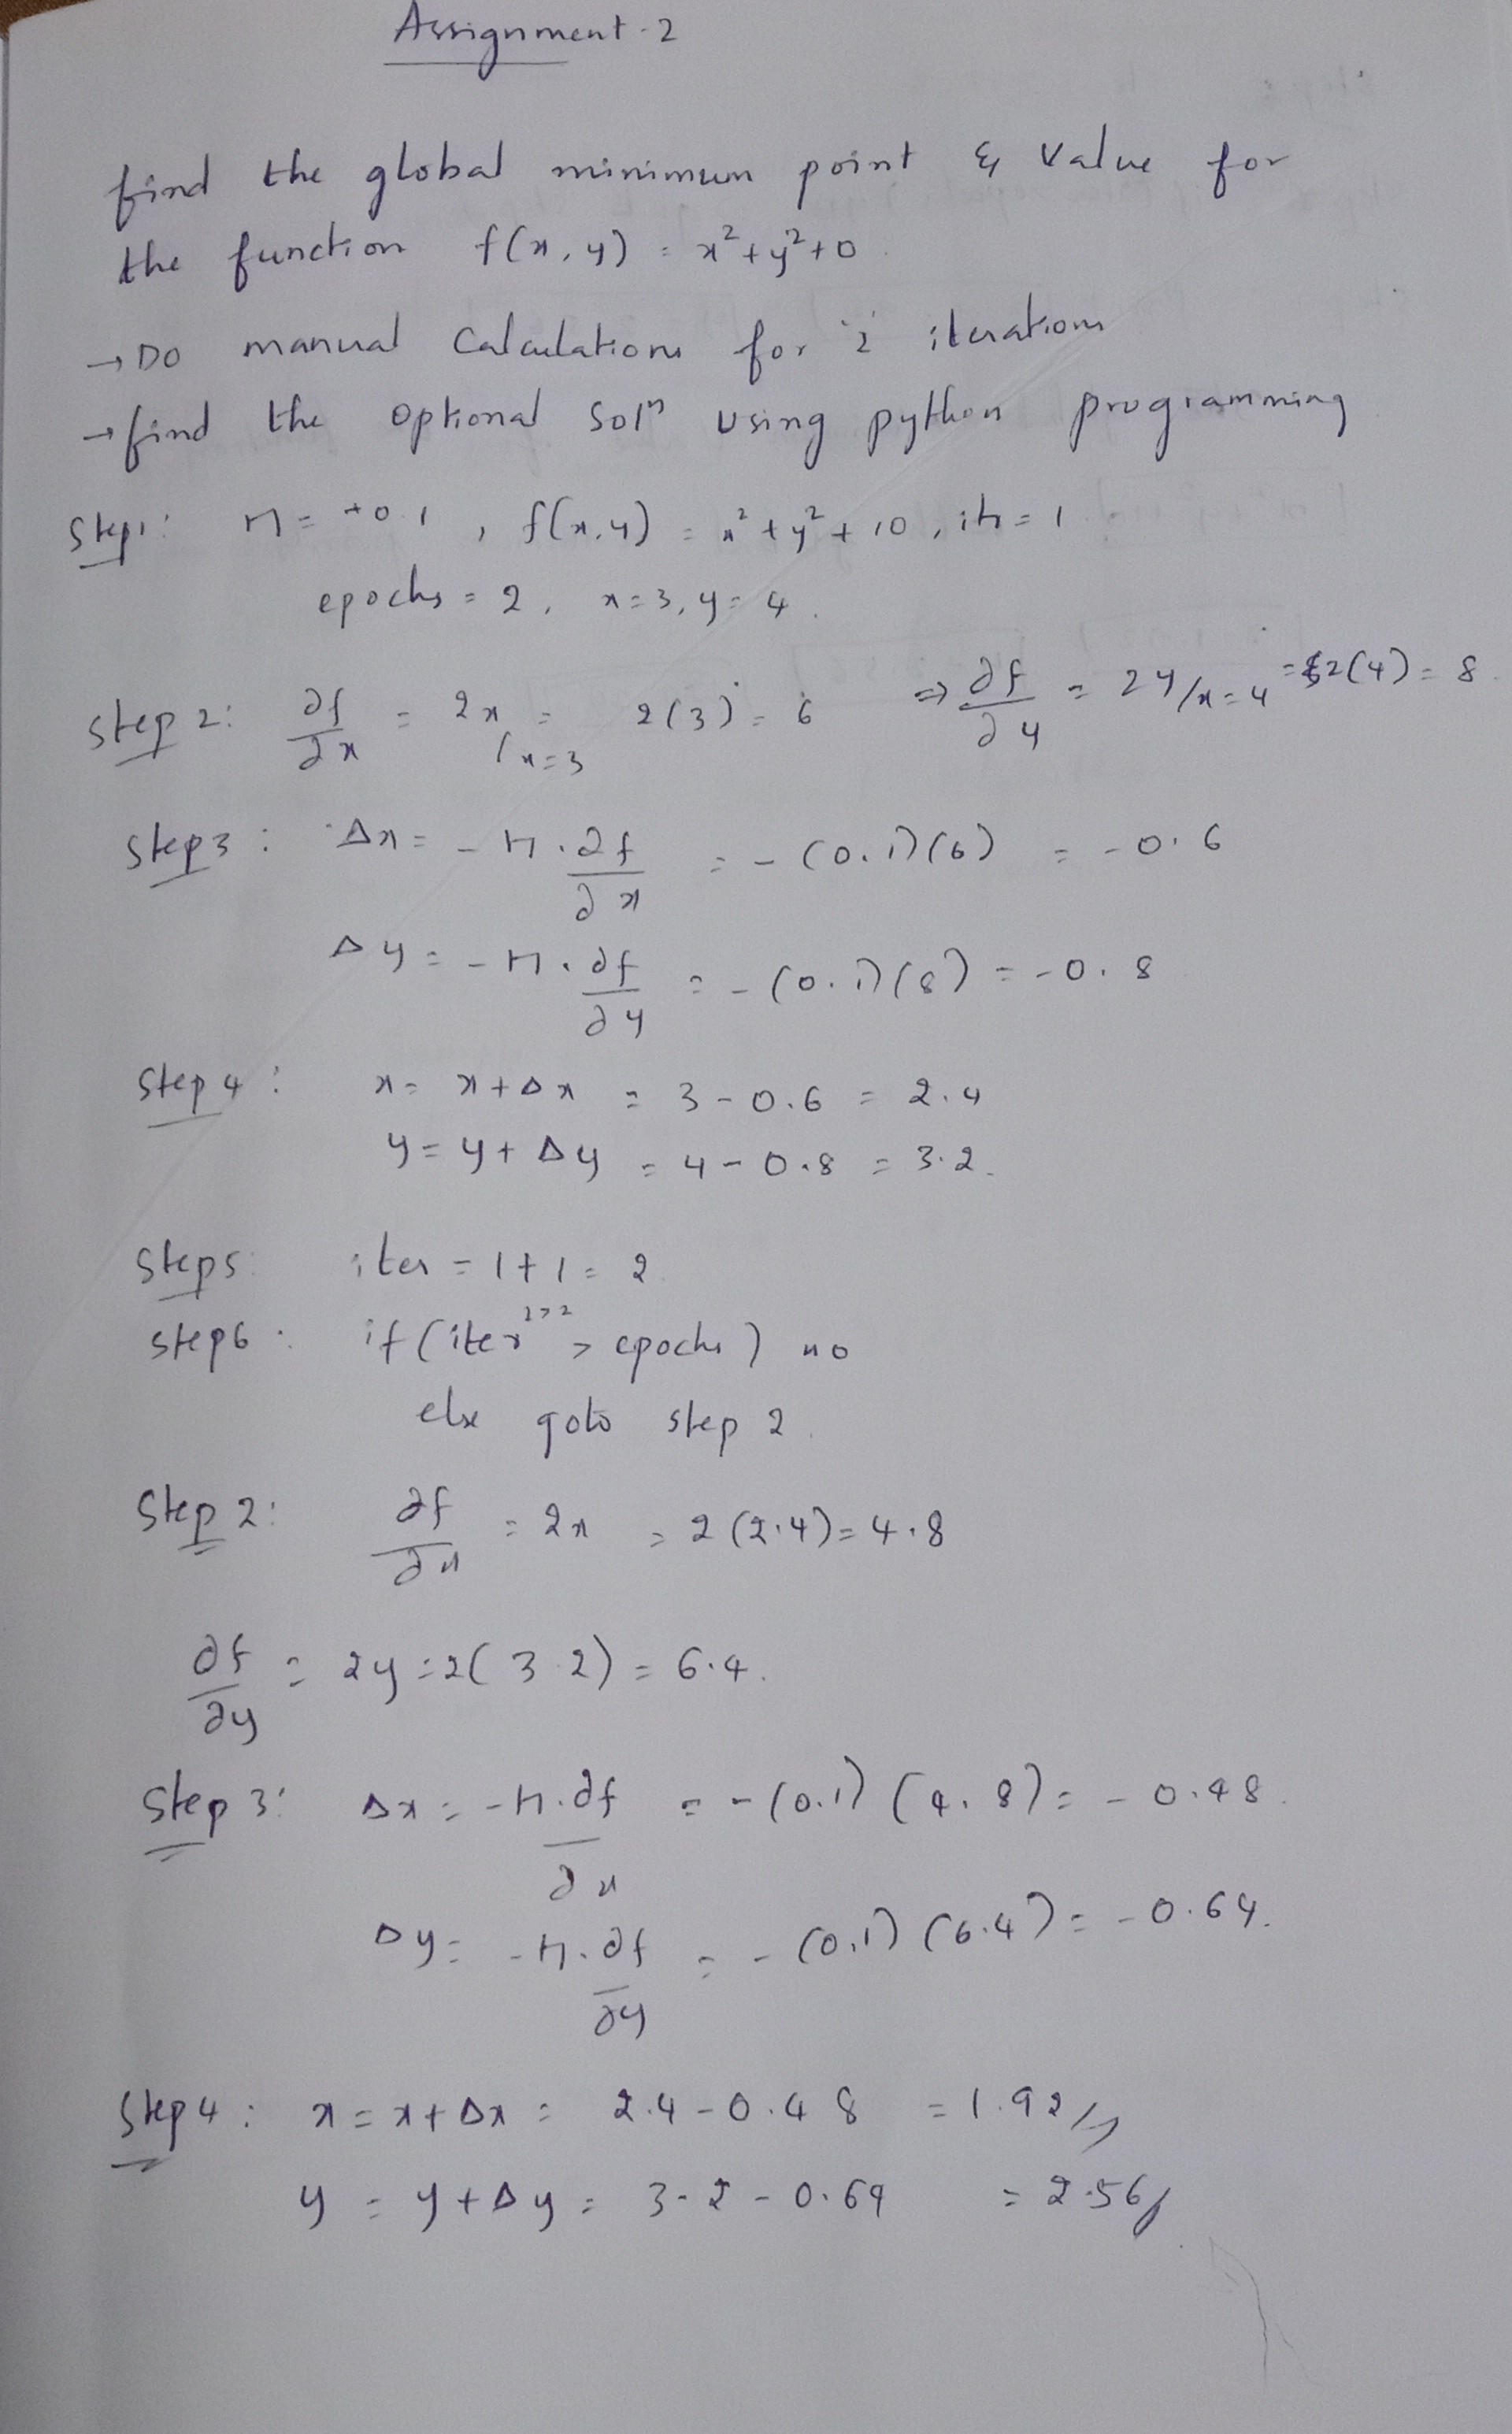 Assignment-2
find the global minimum point & value for
the function f(x, y) = x²+y²+0
→ Do manual calculations for 2 iterations
→ find the optional solⁿ using python programming
Step1: η = +0.1, f(x,y) = x²+y²+10, itr = 1
epochs = 2, x=3, y=4.
Step 2: ∂f/∂x = 2x/x=3 = 2(3) = 6 ⇒ ∂f/∂y = 2y/x=4 = 2(4) = 8
Step3: Δx = -η.∂f/∂x = -(0.1)(6) = -0.6
Δy = -η.∂f/∂y = -(0.1)(8) = -0.8
Step 4: x = x+Δx = 3-0.6 = 2.4
y = y+Δy = 4-0.8 = 3.2
Step5: iter = 1+1 = 2
Step6: if (iter > epochs) no 2>2
else goto step 2
Step 2: ∂f/∂x = 2x = 2(2.4) = 4.8
∂f/∂y = 2y = 2(3.2) = 6.4.
Step 3: Δx = -η.∂f/∂x = -(0.1)(4.8) = -0.48.
Δy = -η.∂f/∂y = -(0.1)(6.4) = -0.64.
Step 4: x = x+Δx = 2.4-0.48 = 1.92//
y = y+Δy = 3.2-0.64 = 2.56//